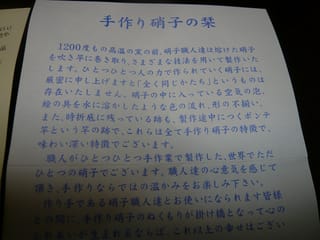 手作り硝子の栞
1200度もの高温の窯の前、硝子職人達は熔けた硝子
を吹き竿に巻き取り、さまざまな技法を用いて製作いた
します。ひとつひとつ人の力で作られていく硝子には、
厳密に申し上げますと「全く同じかたち」というものは
存在いたしません。硝子の中に入っている空気の泡、
絵の具を水に溶かしたような色の流れ、形の不揃い、
また、時折底に残っている跡も、製作途中につくポンテ
竿という竿の跡で、これらは全て手作り硝子の特徴で、
味わい深い特徴でございます。
職人がひとつひとつ手作業で製作した、世界でただ
ひとつの硝子でございます。職人達の心意気を感じて
頂き、手作りならではの温かみをお楽しみ下さい。
作り手である硝子職人達とお使いになられます皆様
との間に、手作り硝子のぬくもりが掛け橋となって心の